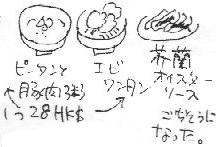 ピータンと
豚肉粥
1つ28HK$
エビ
ワンタン
芥蘭
オイスター
ソース
ごちそうに
なった。